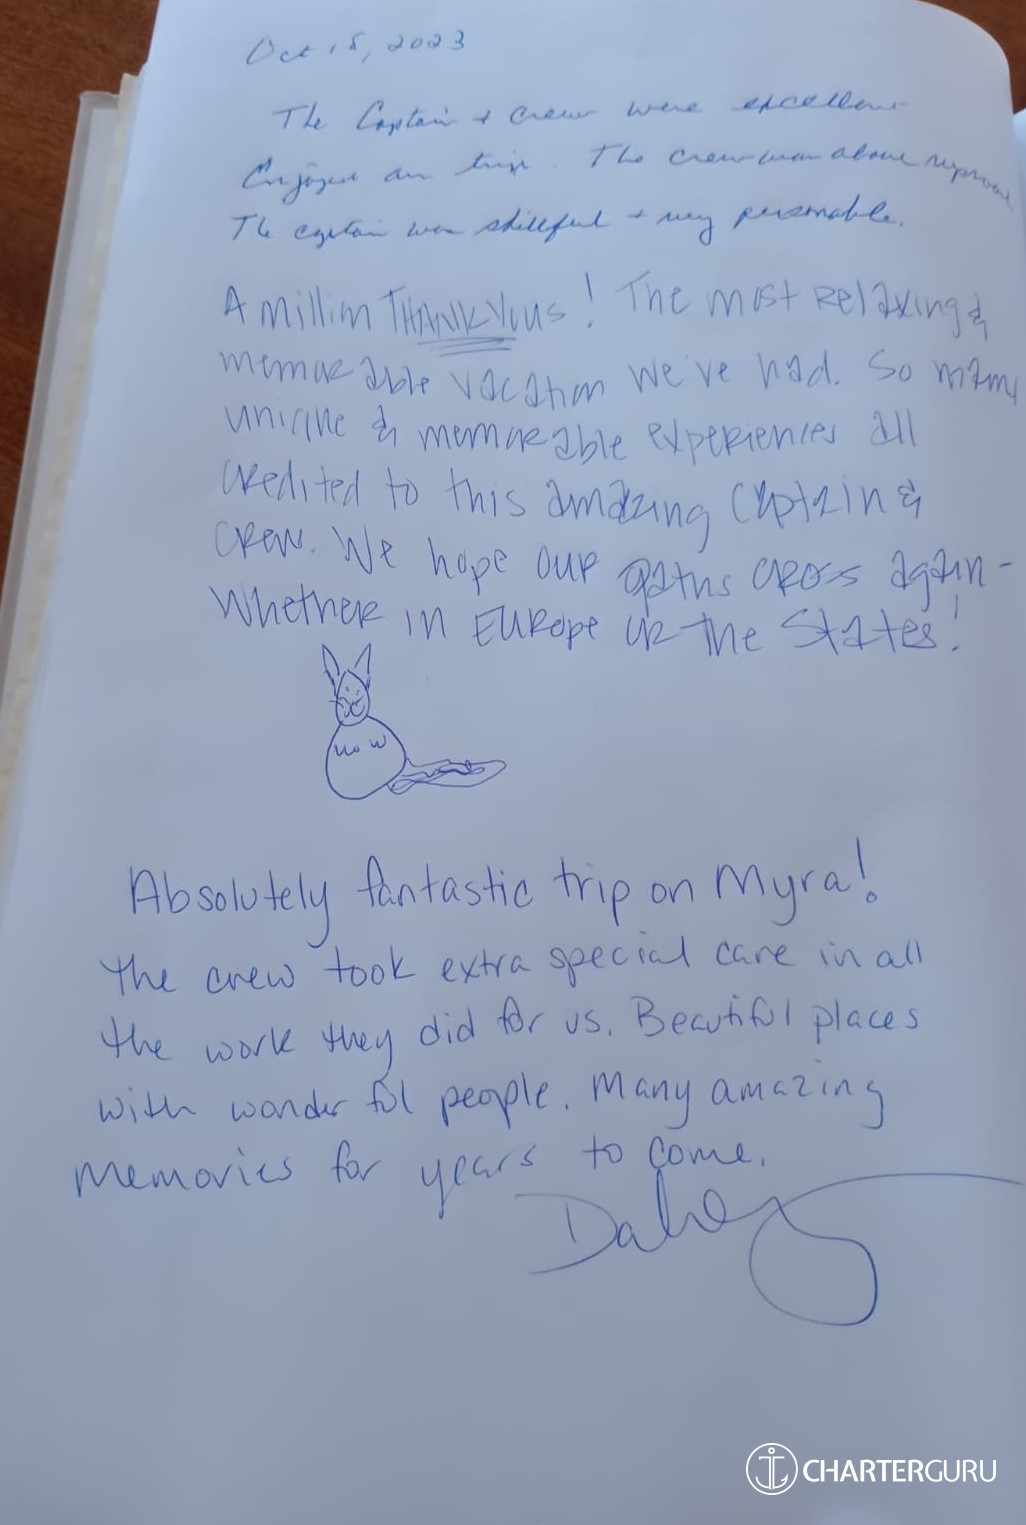 Oct 18, 2023
The Captain + crew were excellent
Enjoyed our trip. The crew was above reproach
The captain was skillful + very personable.
A million THANK YOUs! The most Relaxing &
memorable vacation we've had. So many
unique & memorable experiences all
credited to this amazing Captain &
crew. We hope our paths cross again-
Whether in Europe or the States!
Absolutely fantastic trip on Myra!
The crew took extra special care in all
the work they did for us. Beautiful places
with wonderful people. Many amazing
memories for years to come.
CHARTERGURU